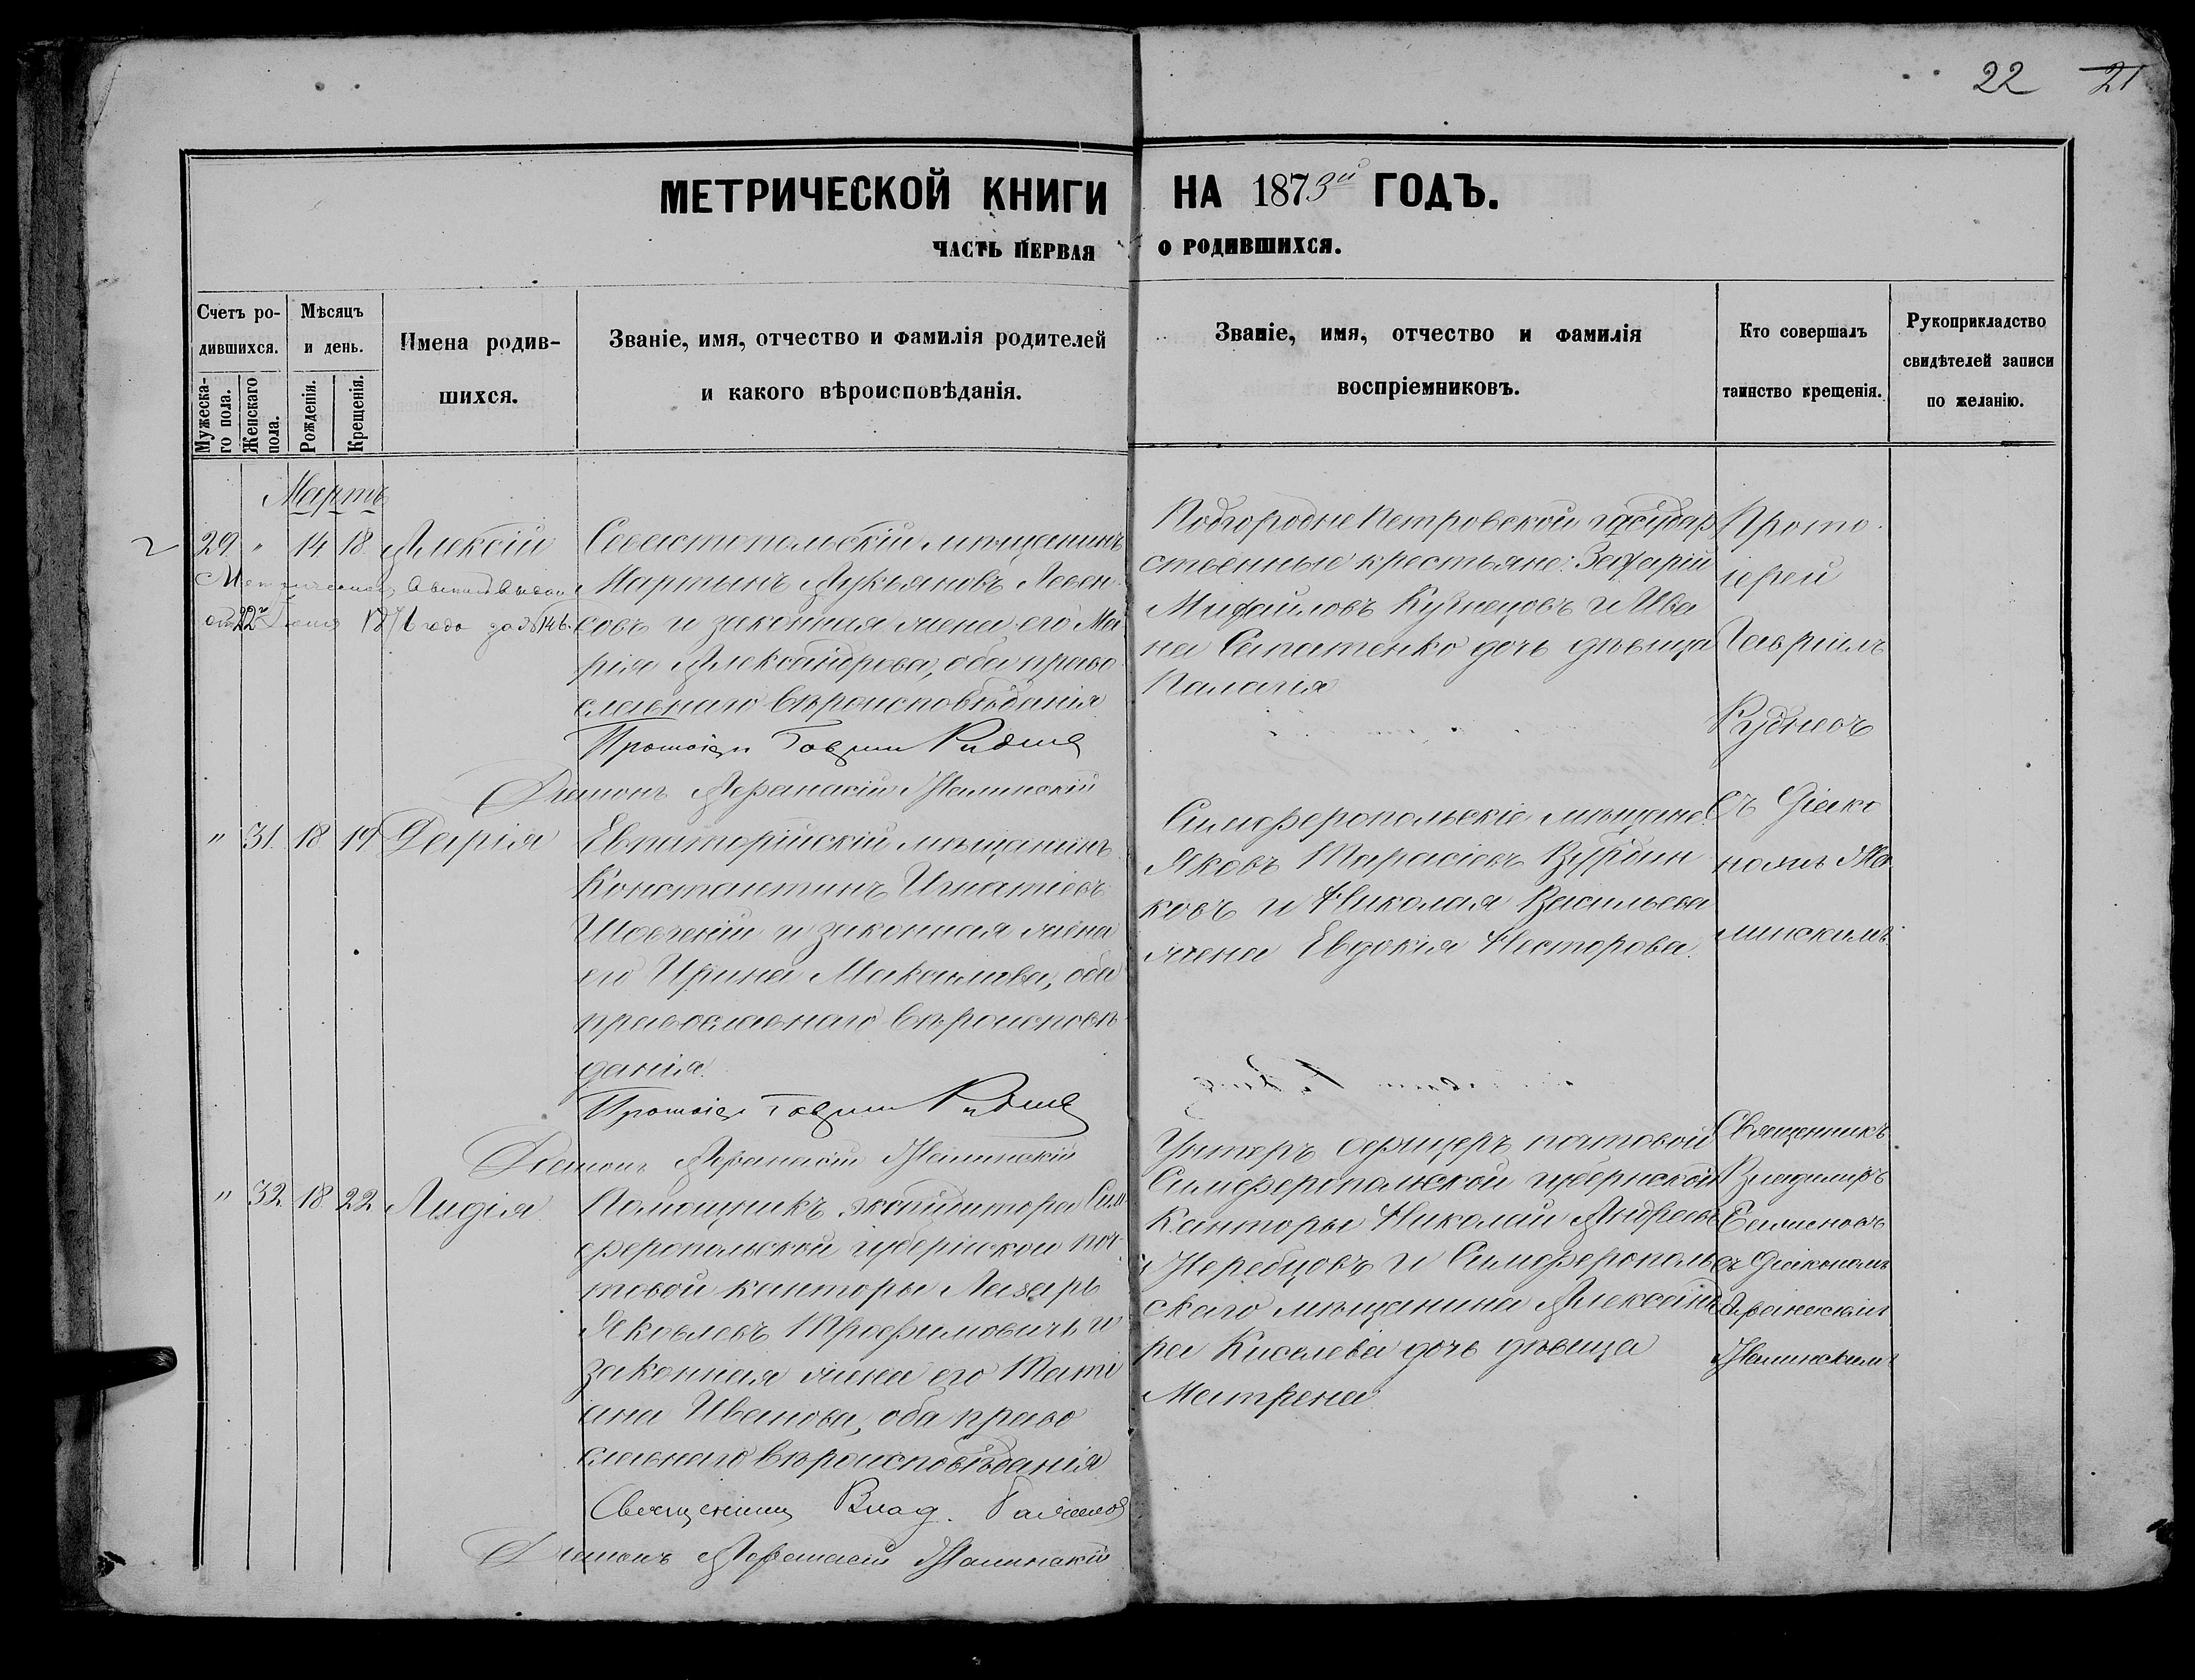 22 21
МЕТРИЧЕСКОЙ КНИГИ НА 1873й ГОДЪ.
ЧАСТЬ ПЕРВАЯ о РОДИВШИХСЯ.
Счетъ ро-
дившихся.
Мужеска-
го пола.
Женскаго
пола.
Мѣсяцъ
и день.
Рожденія.
Крещенія.
Имена родив-
шихся.
Званіе, имя, отчество и фамилія родителей
и какого вѣроисповѣданія.
Званіе, имя, отчество и фамилія
воспріемниковъ.
Кто совершалъ
таинство крещенія.
Рукоприкладство
свидѣтелей записи
по желанію.
Мартъ
29 " 14 18 Алексій
от 22го года за № 146.
Севастопольскій мѣщанинъ
Мартынъ Лукьяновъ Леон
совъ и законная жена его Ма
рія Александрова, оба право
славнаго вѣроисповѣданія
Протоіер Гавріил Руднев
Діаконъ Афанасій Жалинскій
Подгородне Петровской государ
ственные крестьяне: Захарій
Михайловъ Кузнецовъ и Ива
на Сапатенко дочь дѣвица
Палагія
Прото
іерей
Гавріилъ
Рудневъ
съ діако
номъ Жа
линскимъ
" 31 18 19 Дарія
Евпаторійскій мѣщанинъ
Константинъ Игнатіевъ
и законная жена
его Ирина Максимова, оба
православнаго вѣроисповѣ
данія.
Протоіер Гавріил Руднев
Діаконъ Афанасій Жалинскій
Симферопольскіе мѣщане:
Яковъ Тарасіевъ Бурдин
ковъ и Николая Васильева
жена Евдокія Несторова.
" 32 18 22 Лидія
Помощникъ экспедитора Сим
феропольской губернской поч
товой канторы Лазарь
Яковлевъ Трофимовичъ и
законная жена его Тати
ана Иванова, оба право
славнаго вѣроисповѣданія
Священникъ Влад. Баженов
Діаконъ Афанасій Жалинскій
Унтеръ офицеръ почтовой
Симферопольской губернской
Канторы Николай Андреевъ
Жеребцовъ и Симферополь
скаго мѣщанина Александ
ра Киселева дочь дѣвица
Матрена
Священникъ
Владимиръ
Баженовъ
съ діакономъ
Афанасіемъ
Жалинскимъ